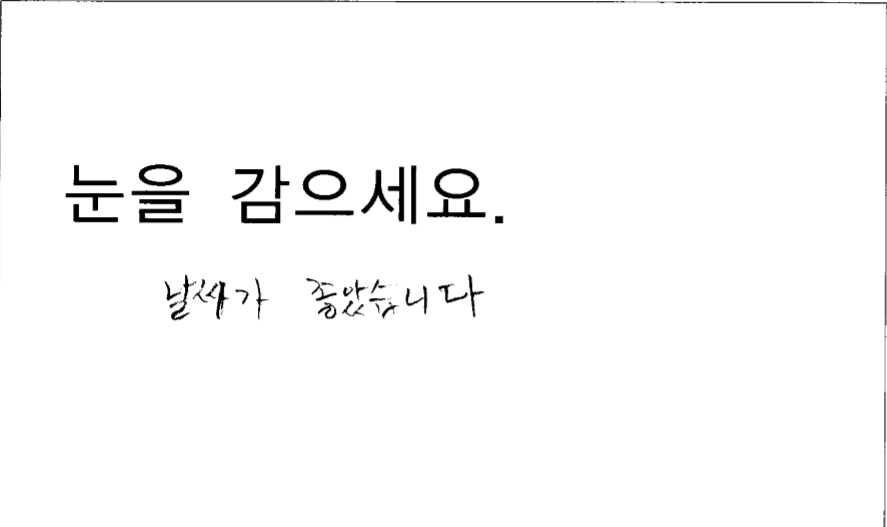 눈을 감으세요.
날씨가 좋았습니다